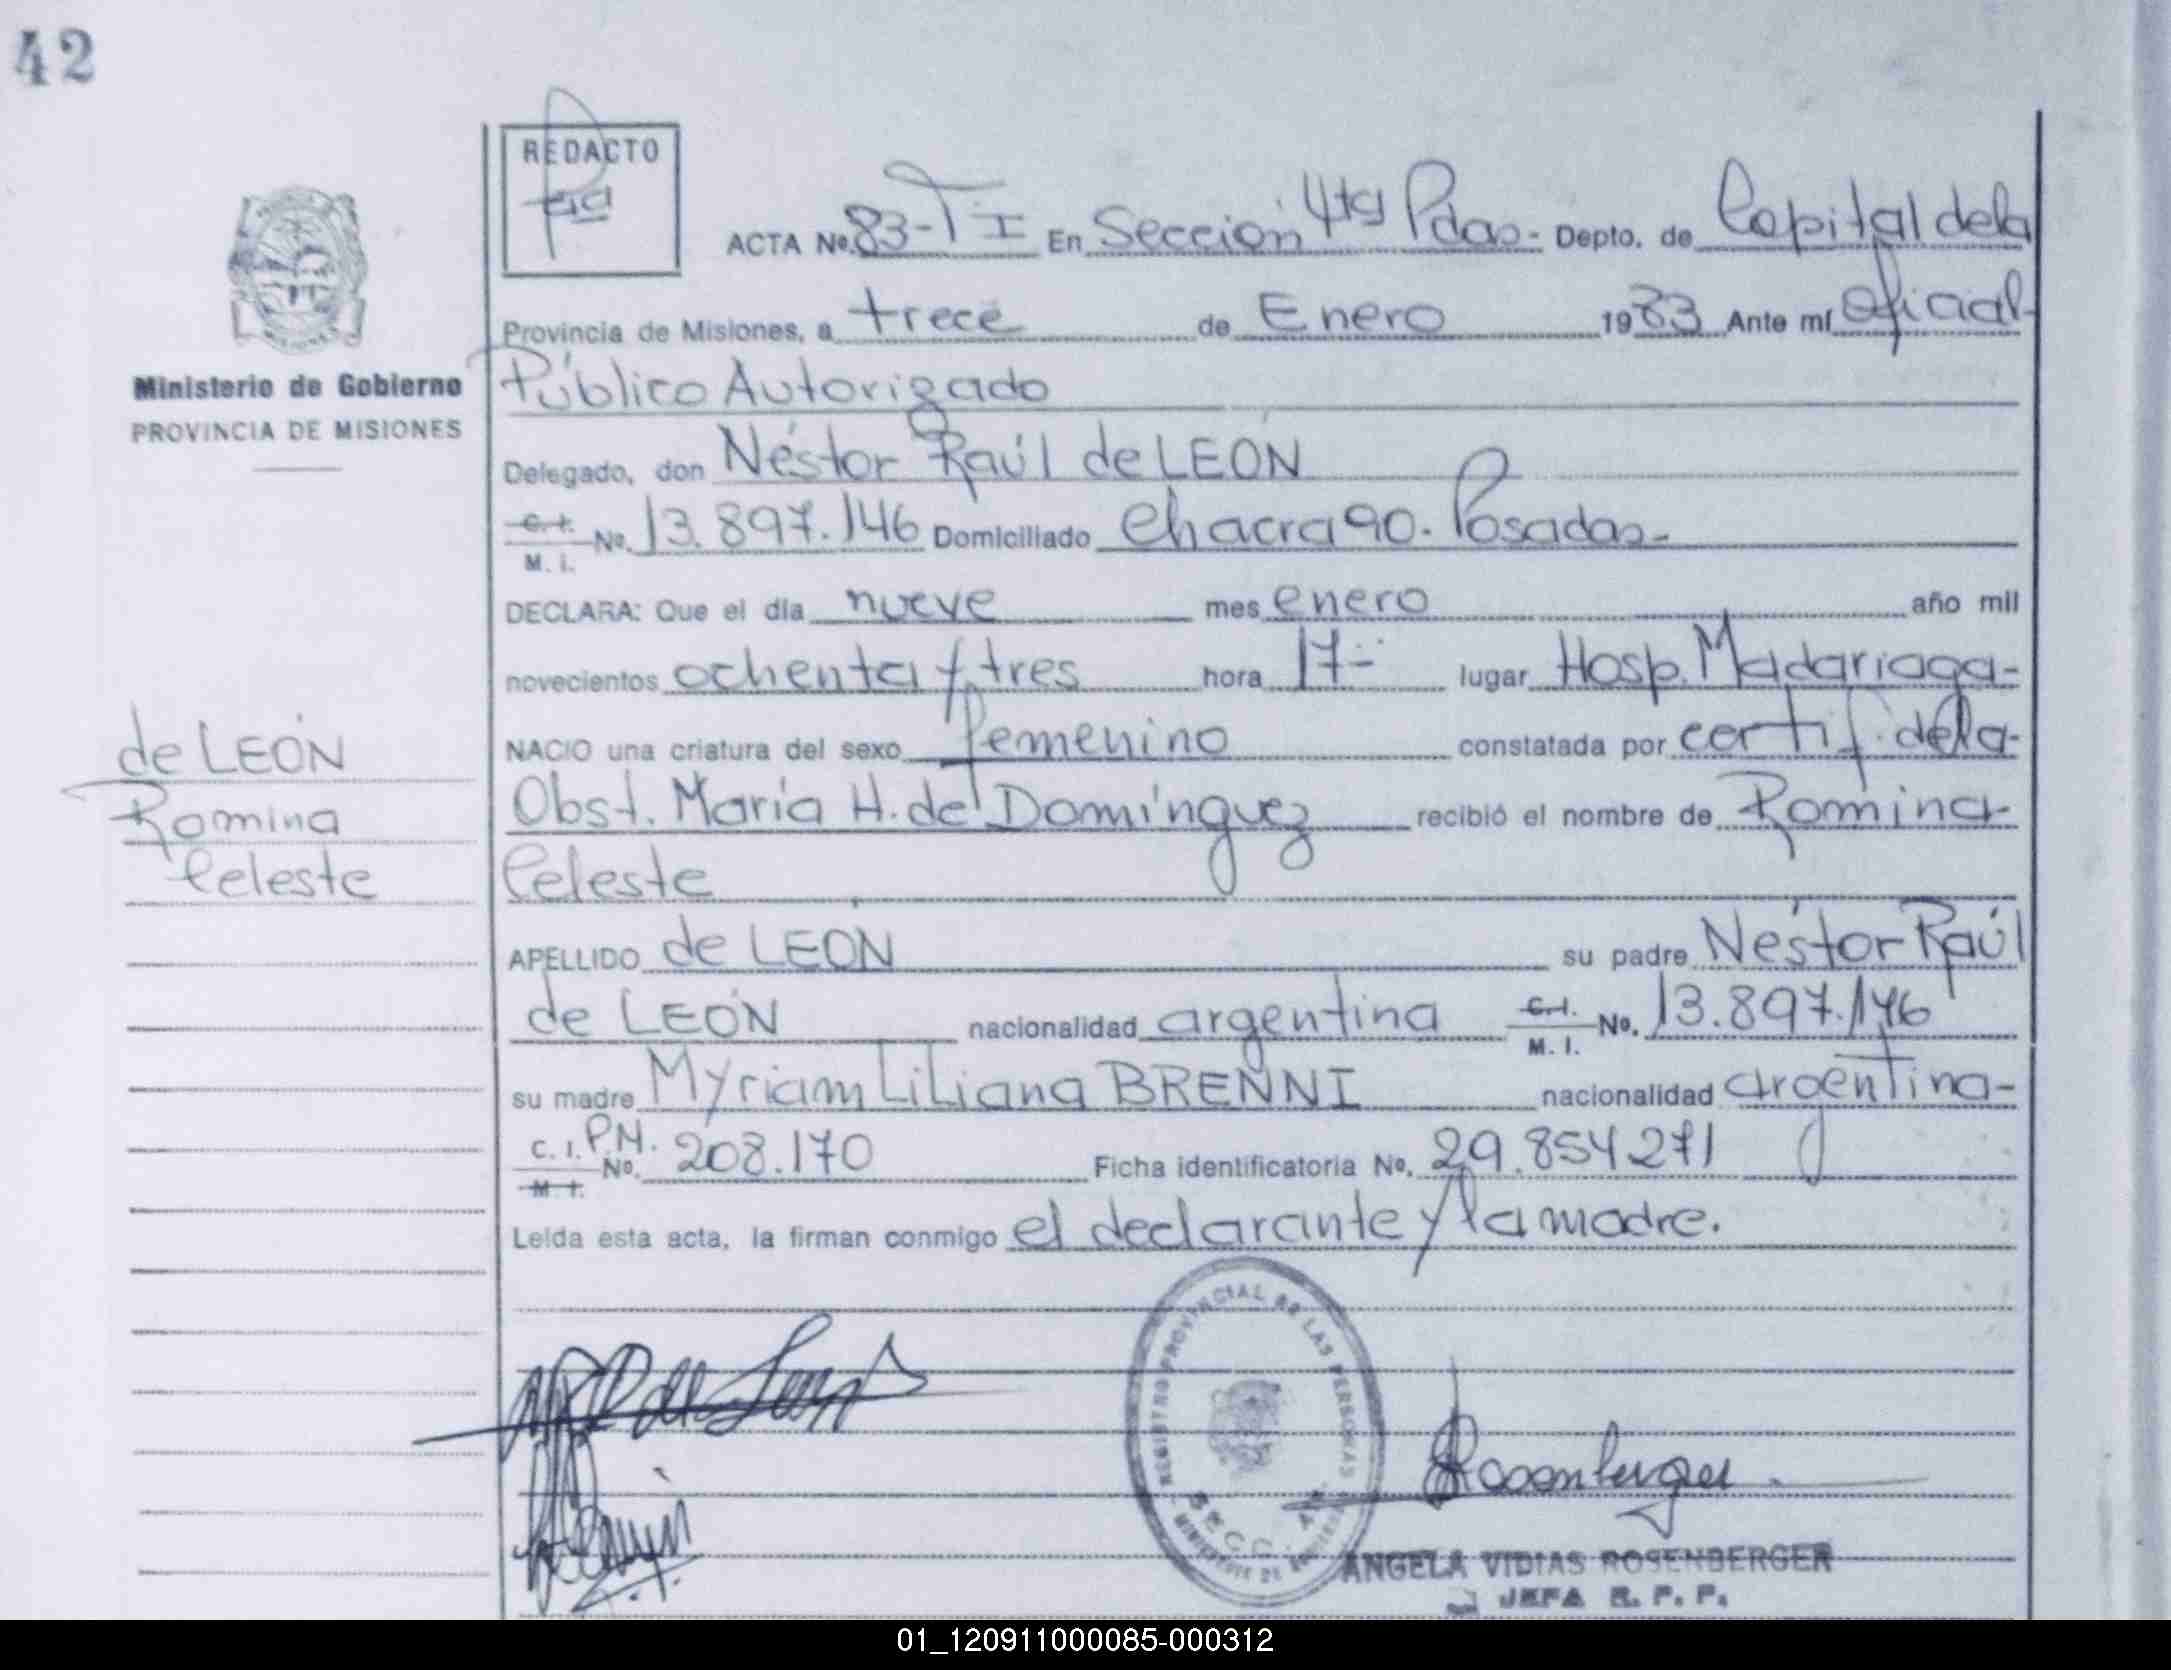 42
REDACTO
ACTA No. 83-T I En Sección 4ta Pdas- Depto. de Capital dela
Provincia de Misiones, a trece de Enero 1983 Ante mí Oficial
Público Autorizado
Ministerio de Gobierno
PROVINCIA DE MISIONES
Delegado, don Néstor Raúl de LEÓN
C. I.
M. I. No. 13.897.146 Domiciliado Chacra 90. Posadas-
DECLARA: Que el día nueve mes enero año mil
novecientos ochenta y tres hora 17- lugar Hosp. Madariaga-
NACIO una criatura del sexo femenino constatada por certif. dela-
Obst. María H. de Domínguez recibió el nombre de Romina-
Celeste
de LEÓN
Romina
Celeste
APELLIDO de LEÓN su padre Néstor Raúl
de LEÓN nacionalidad argentina C. I.
M. I. No. 13.897.146
su madre Myriam Liliana BRENNI nacionalidad argentina-
C. I. P.M.
M. I. No. 208.170 Ficha identificatoria No. 29.854271
Leída esta acta, la firman conmigo el declarante y la madre.
REGISTRO PROVINCIAL DE LAS PERSONAS
SECC. 4ta
MINISTERIO DE GOBIERNO
Rosenberger
ANGELA VIDIAS ROSENBERGER
JEFA R. P. P.
01_120911000085-000312